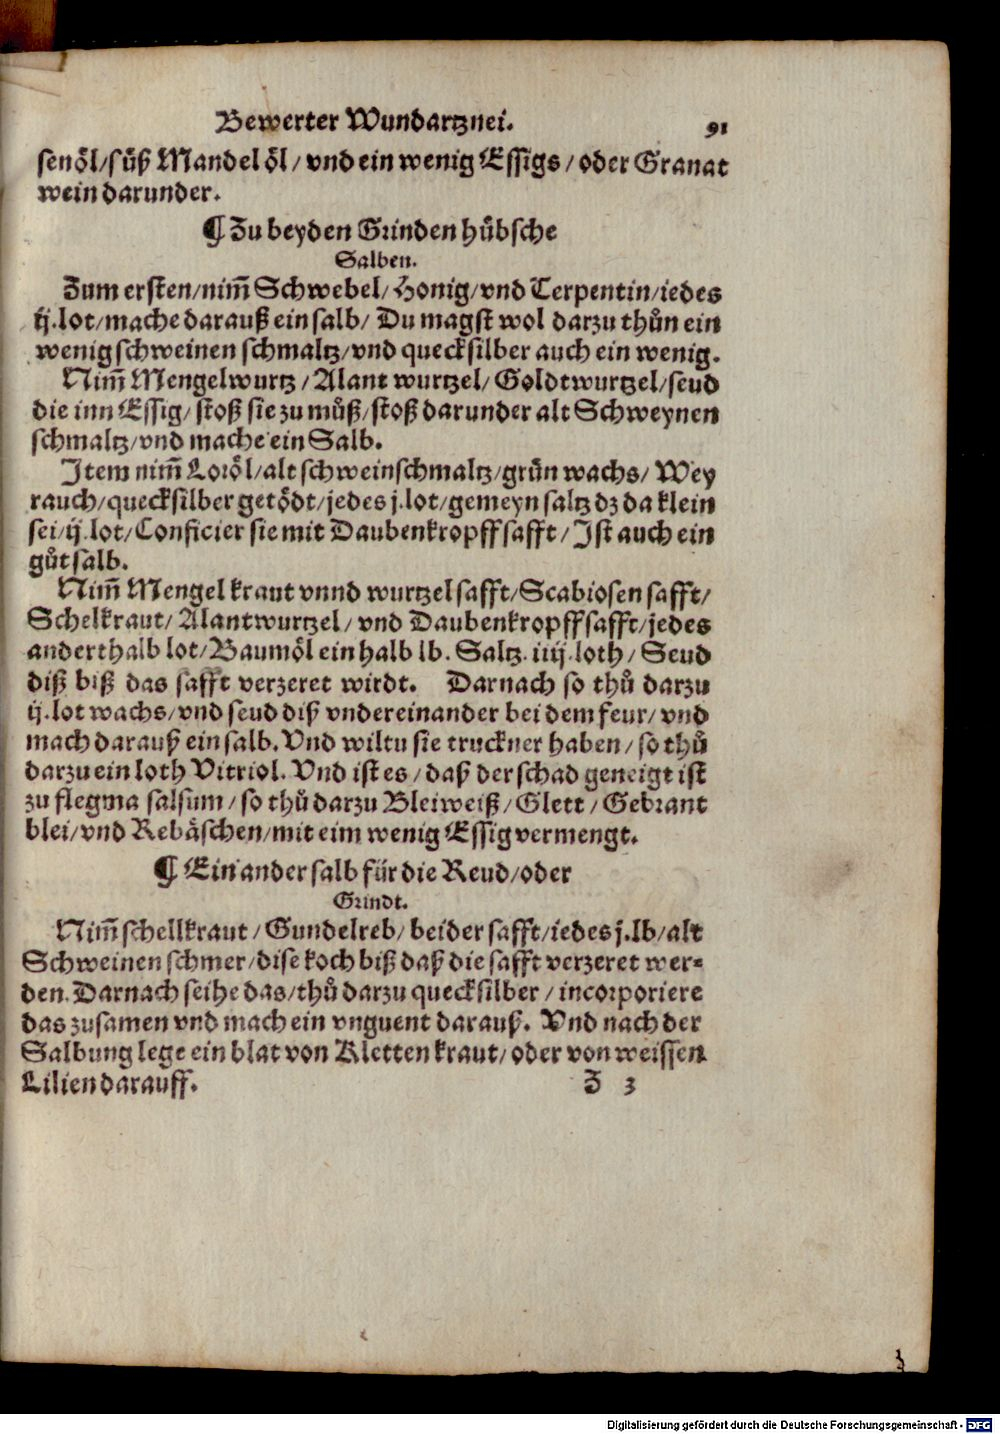 Bewerter Wundartznei. 91
senöl/süß Mandel öl/ vnd ein wenig Essigs/ oder Granat
wein darunder.
¶ Zu beyden Grinden hübsche
Salben.
Zum ersten/nim̃ Schwebel/Honig/vnd Terpentin/iedes
ij.lot/mache darauß ein salb/ Du magst wol darzu thůn ein
wenig schweinen schmaltz/vnd quecksilber auch ein wenig.
Nim̃ Mengelwurtz/Alant wurtzel/Goldtwurtzel/seud
die inn Essig/stoß sie zu můß/stoß darunder alt Schweynen
schmaltz/vnd mache ein Salb.
Item nim̃ Loröl/alt schweinschmaltz/grün wachs/Wey
rauch/quecksilber getödt/jedes j.lot/gemeyn saltz dz da klein
sei/ij.lot/Conficier sie mit Daubenkropff safft/Ist auch ein
gůt salb.
Nim̃ Mengel kraut vnnd wurtzel safft/Scabiosen safft/
Schelkraut/Alantwurtzel/vnd Daubenkropff safft/jedes
anderthalb lot/Baumöl ein halb lb. Saltz.iiij.loth/Seud
diß biß das safft verzeret wirdt. Darnach so thů darzu
ij.lot wachs/vnd seud diß vndereinander bei dem feur/vnd
mach darauß ein salb. Vnd wiltu sie truckner haben/so thů
darzu ein loth Vitriol. Vnd ist es/daß der schad geneigt ist
zu flegma salsum/so thů darzu Bleiweiß/Glett/Gebrant
blei/vnd Rebäschen/mit eim wenig Essig vermengt.
¶ Ein ander salb für die Reud/oder
Grindt.
Nim̃ schellkraut/Gundelreb/beider safft/iedes j.lb/alt
Schweinen schmer/dise koch biß daß die safft verzeret wer-
den. Darnach seihe das/thů darzu quecksilber/incorporiere
das zusamen vnd mach ein vnguent darauß. Vnd nach der
Salbung lege ein blat von Kletten kraut/oder von weissen
Lilien darauff. Z 3
Digitalisierung gefördert durch die Deutsche Forschungsgemeinschaft - DFG